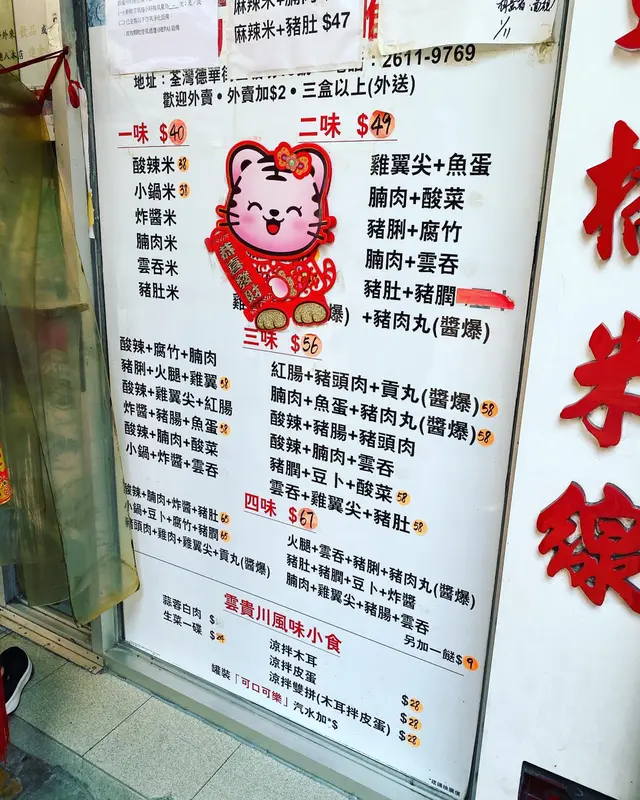 麻辣米+豬肚 $47
1/11
地址：荃灣德華街
2611-9769
歡迎外賣・外賣加$2・三盒以上(外送)
一味 $40
酸辣米 38
小鍋米 38
炸醬米
腩肉米
雲吞米
豬肚米
二味 $49
雞翼尖+魚蛋
腩肉+酸菜
豬脷+腐竹
腩肉+雲吞
豬肚+豬膶
爆) +豬肉丸(醬爆)
恭喜發財
三味 $56
酸辣+腐竹+腩肉
豬脷+火腿+雞翼 58
酸辣+雞翼尖+紅腸
炸醬+豬腸+魚蛋 58
酸辣+腩肉+酸菜
小鍋+炸醬+雲吞
紅腸+豬頭肉+貢丸(醬爆)
腩肉+魚蛋+豬肉丸(醬爆) 58
酸辣+豬腸+豬頭肉 58
酸辣+腩肉+雲吞
豬膶+豆卜+酸菜 58
雲吞+雞翼尖+豬肚 58
四味 $67
酸辣+腩肉+炸醬+豬肚
小鍋+豆卜+腐竹+豬膶
豬頭肉+雞肉+雞翼尖+貢丸(醬爆)
火腿+雲吞+豬脷+豬肉丸(醬爆)
豬肚+豬膶+豆卜+炸醬
腩肉+雞翼尖+豬腸+雲吞
另加一餸$9
雲貴川風味小食
蒜蓉白肉 $
生菜一碟 $
涼拌木耳 $28
涼拌皮蛋 $28
涼拌雙拼(木耳拌皮蛋) $28
罐裝「可口可樂」汽水加*$
米線